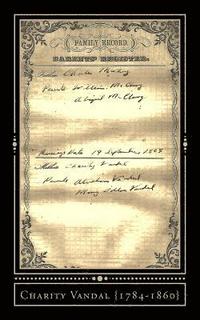 FAMILY RECORD.
PARENTS' REGISTER.
Father
Parents William McClung
Abigail McClung
Marriage Date 19 September 18
Mother Charity Vandal
Parents Abraham Vandal
Mary Vandal
CHARITY VANDAL {1784-1860}